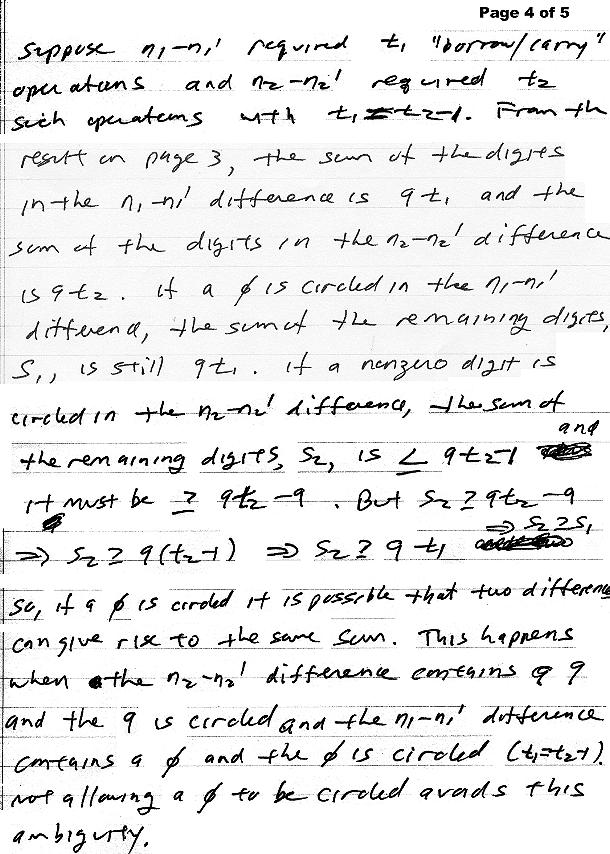 Page 4 of 5
Suppose n₁-n₁' required t₁ "borrow/carry"
operations and n₂-n₂' required t₂
such operations with t₁=t₂-1. From the
result on page 3, the sum of the digits
in the n₁-n₁' difference is 9t₁ and the
sum of the digits in the n₂-n₂' difference
is 9t₂. If a ø is circled in the n₁-n₁'
difference, the sum of the remaining digits,
S₁, is still 9t₁. If a nonzero digit is
circled in the n₂-n₂' difference, the sum of
the remaining digits, S₂, is ≤ 9t₂-1 and
it must be ≥ 9t₂-9. But S₂ ≥ 9t₂-9
⇒ S₂ ≥ 9(t₂-1) ⇒ S₂ ≥ 9t₁ ⇒ S₂ ≥ S₁
So, if a ø is circled it is possible that two difference
can give rise to the same sum. This happens
when the n₂-n₂' difference contains a 9
and the 9 is circled and the n₁-n₁' difference
contains a ø and the ø is circled (t₁=t₂-1).
Not allowing a ø to be circled avoids this
ambiguity.